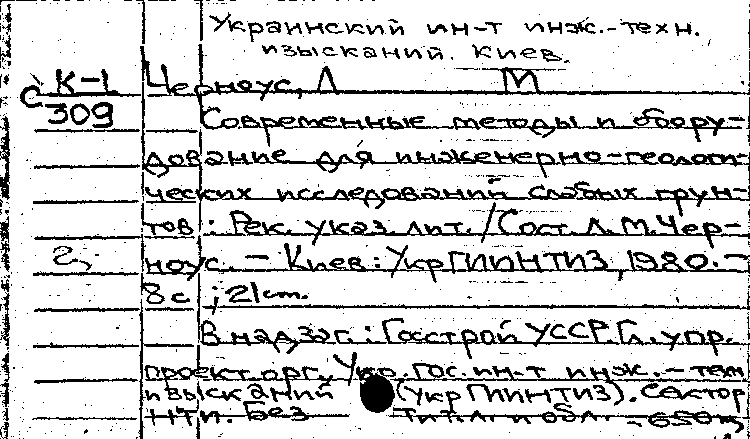 Украинский ин-т инж.-техн.
изысканий. Киев.
К-1 Черноус, Л М
с 309
Современные методы и обору-
дование для инженерно-геологи-
ческих исследований слабых грун-
тов : Рек. указ. лит. / Сост. Л. М. Чер-
ноус. - Киев : УкрГИИНТИЗ, 1980. -
8 с ; 21 cm.
В надзаг. : Госстрой УССР. Гл. упр.
проект. орг., Укр. гос. ин-т инж. - техн
изысканий (УкрГИИНТИЗ). Сектор
НТИ. Без тит. л. и обл. - 650